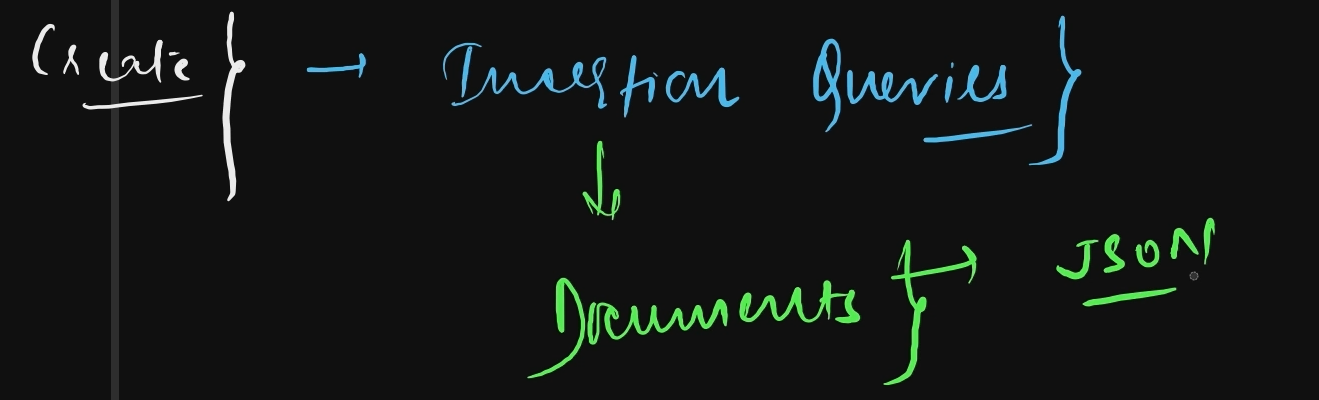 Create } → Insertion Queries }
↓
Documents } → JSON